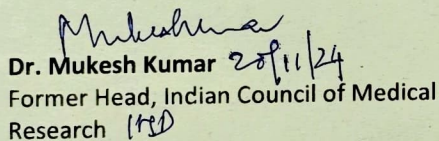 Mukeshkumar
Dr. Mukesh Kumar 20/11/24
Former Head, Indian Council of Medical
Research